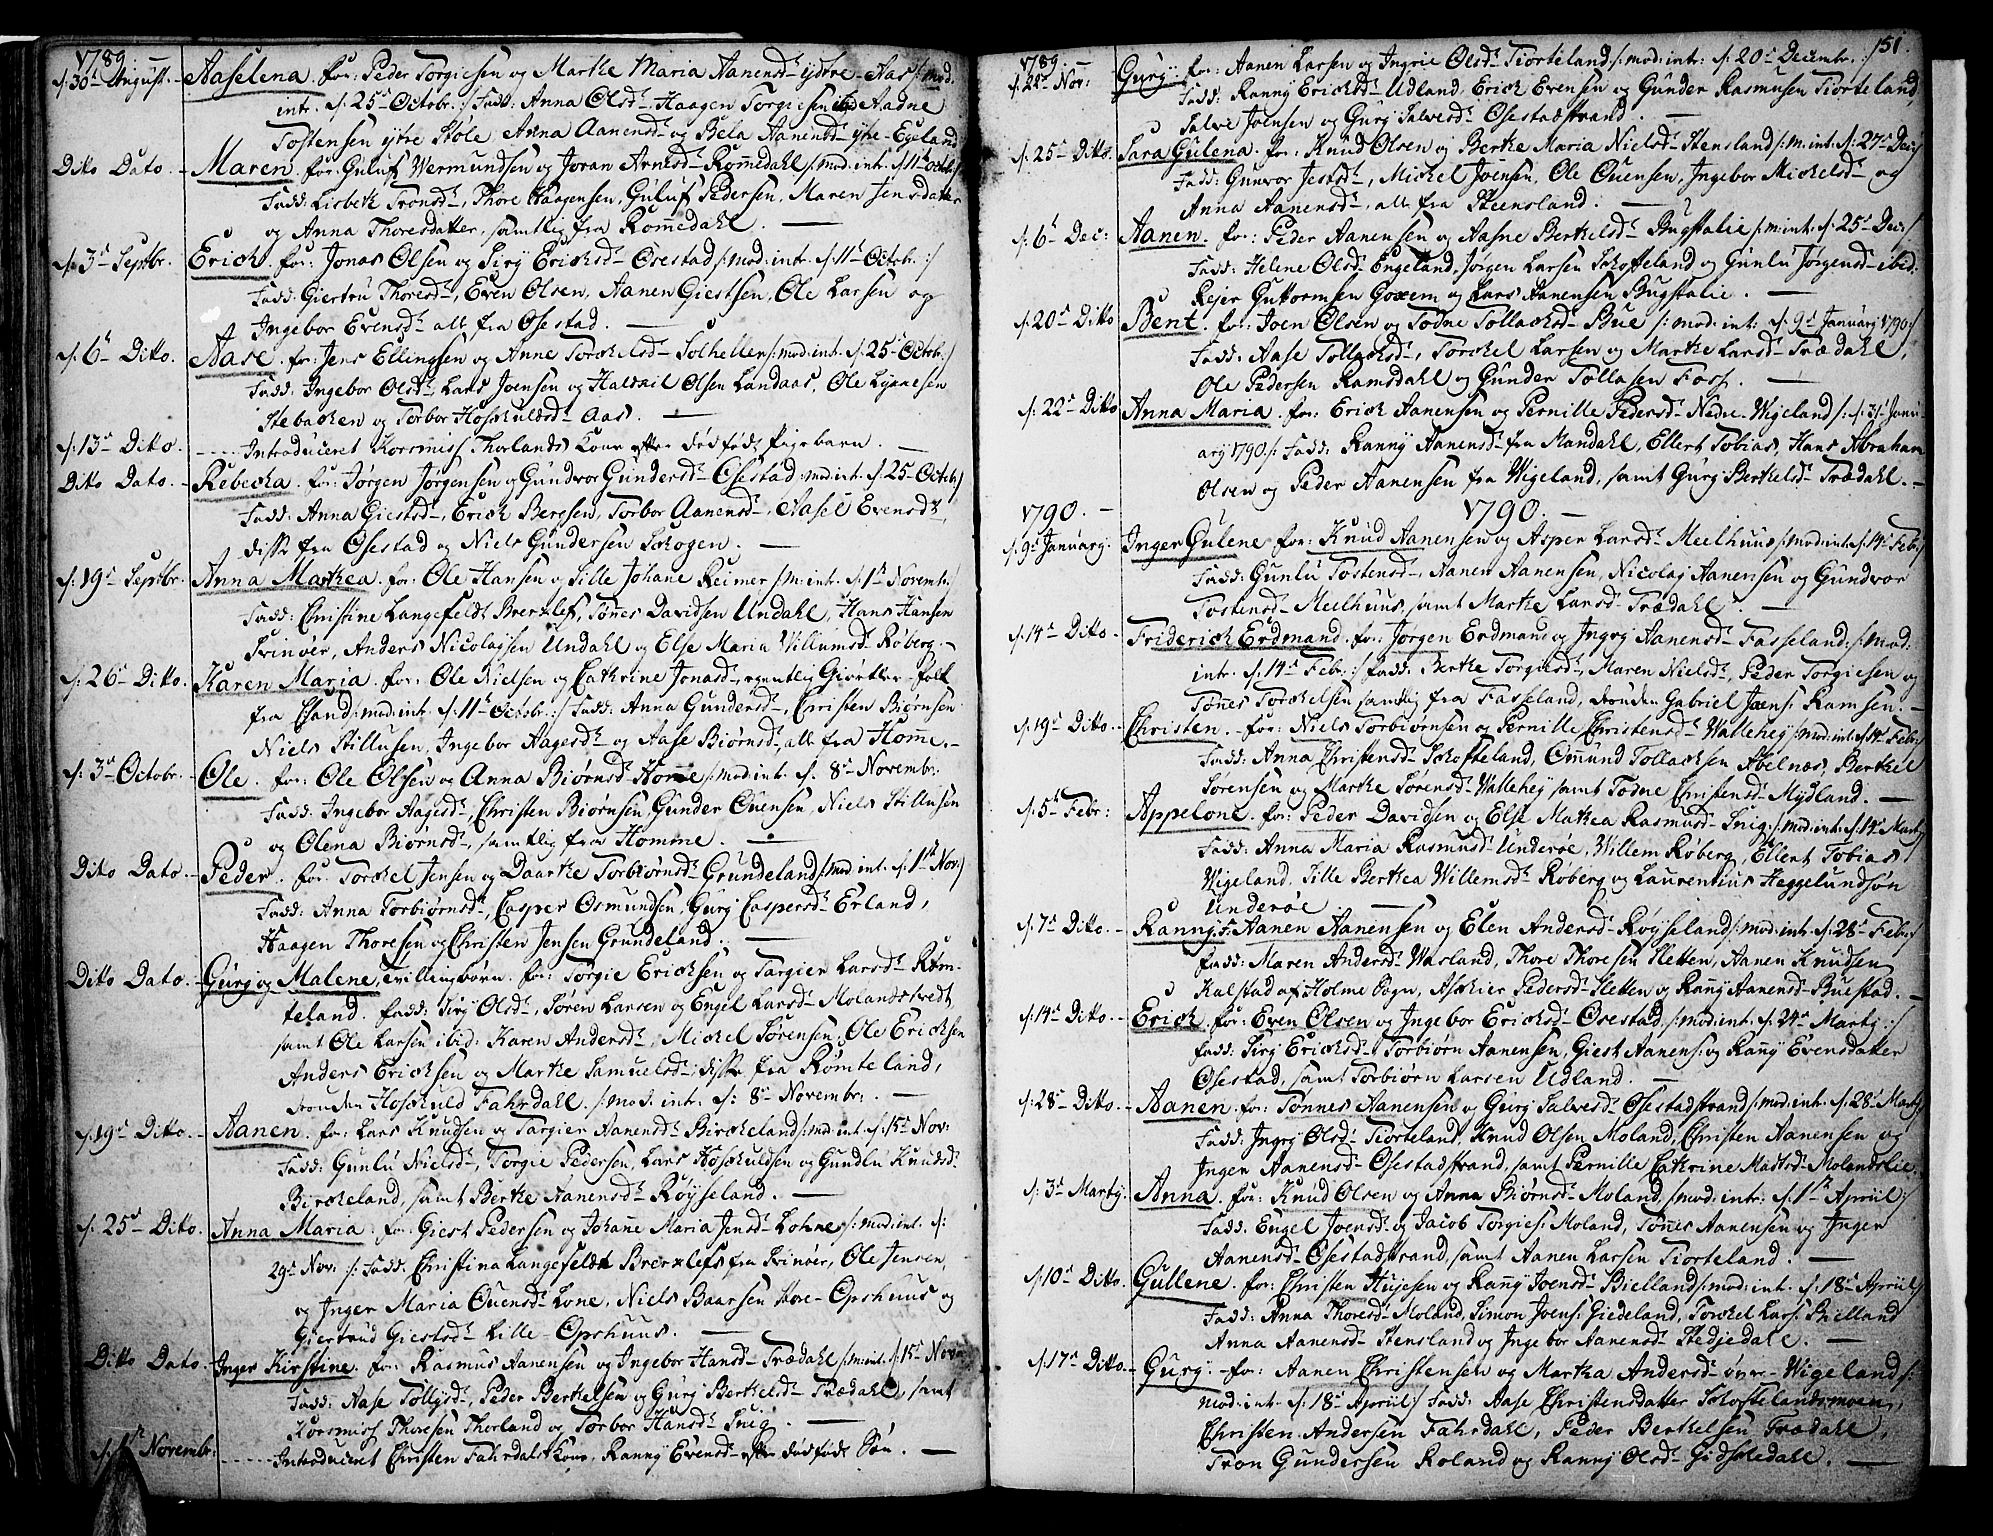 1789.
s: 30te August. - Aaselena. for: Peder Torgiesen og Marthe Maria Aanensd. ystre-Aas /: mod.
intr. s: 25de Octobr. :/ Fadd: Anna Olsd. Haagen Torgiesen ibid Aadne
Tostensen ystre Støle, Anna Aanensd. og Bela Aanensd. ytre-Egeland
Dito Dato. - Maren. for: Guluf Wermundsen og Joran Arnesd. Romedahl /: mod: int. s: 11te Octob:/
Fadd: Lisbeth Tronsd., Thore Haagensen, Guluf Pedersen, Maren Jensdatter
og Anna Thoresdatter, samtlig fra Romedahl.
s: 3de Septbr. Erich. for: Jonas Olsen og Siry Ericksd. Osestad /: mod: intr. s: 11te Octobr. :/
Fadd: Giertru Thoresd., Even Olsen, Aanen Giestsen, Ole Larsen og
Ingebor Evensd. all fra Osestad.
s: 6te Ditto. Aase. for: Jens Ellingsen og Anne Torckelsd. Solhellen /: mod: int. s: 25de Octob:/
Fadd: Ingebor Olsd., Lars Joensen og Haldail Olsen Landaas, Ole Lynæsen
Stebacken og Torbor Hoskuldsd. Aas.
s: 13de Ditto. .... Introduceret Kormis Thorlands Kone efter dødfødt Pigebarn.
Dito Dato. - Rebecka. for: Jørgen Jørgensen og Gundvor Gundersd. Osestad /: mod: int. s: 25de Octob:/
Fadd: Anna Giestsd., Erich Beresen, Torbor Aanensd., Aasel Evensd.,
disse fra Osestad og Niels Gundersen Skogen.
s: 19de Septbr. Anna Marthea. for: Ole Hansen og Sille Johane Reimer /: m: intr. s: 1te Novemb:/
Fadd: Christine Langefeldt Brerklef, Tønes Davidsen Undahl, Hans Hansen
Svinøer, Anders Nicolaisen Undahl og Else Maria Willumsd. Røberg.
s: 26de Ditto. Karen Maria. for: Ole Nielsen og Cathrine Jonasd., egentlig Giørtler-folk
fra Island /: mod: int. s: 11te Octobr. :/ Fadd: Anna Gundersd., Christen Biørnsen
Niels Stillufsen, Ingebor Aagesd. og Aase Biørnsd. all fra Home.
s: 3de Octobr. Ole. for: Ole Olsen og Anna Biørnsd. Home /: mod: int. s: 8de Novembr:
Fadd: Ingebor Aagesd., Christen Biørnsen, Gunder Ovensen, Niels Stillufsen
og Olena Biørnsd. samtlig fra Homme.
Dito Dato. - Peder. for: Torckel Jensen og Daarthe Torbiørnsd. Grundeland /: mod int. s: 1te Nov:/
Fadd: Anna Torbiørnsd., Casper Osmundsen, Gurj Caspersd. Erland,
Haagen Thoresen og Christen Jensen Grundeland.
Ditto Dato. - Gurj og Malene, Tvillingbørn. for: Torgie Ericksen og Targier Larsd. Røm-
teland. fadd: Siry Olsd., Søren Larsen og Engel Larsd. Molandstvedt
samt Ole Larsen ibid: Karen Andersd., Mickel Sørensen, Ole Ericksen
Anders Ericksen og Marthe Samuelsd., disse fra Rømteland,
desuden Hoskuld Fahrdahl. /: mod: intr. s: 8de Novembr:
s: 19de Ditto. - Aanen. for: Lars Knudsen og Targier Aanensd. Birckeland /: mod: int. s: 15de Nov:
Fadd: Gunlu Nielsd., Torgie Pedersen, Lars Hoskuldsen og Gundlu Knudsd.
Birckeland, samt Berthe Aanensd. Røyseland.
s: 25de Ditto. Anna Maria. for: Giest Pedersen og Johane Maria Jensd. Lohne /: mod: int. s:
29de Nov: :/ Fadd. Christina Langefeldt Brerklefs fra Svinøer, Ole Jensen,
og Inger Maria Ovensd. Lone, Niels Baarsen Store-Opshuus og
Giertrud Giestsd. Lille-Opshuus.
Ditto Dato. Inger Kirstine. for: Rasmus Aanensen og Ingebor Hansd. Trædahl /: m: int. s: 15de Nov:
Fadd: Aase Tollgsd., Peder Berthelsen og Gurj Berthelsd. Trædahl, samt
Kormis Thoresen Thorland og Torbor Hansd. Snig.
s: 1te Novembr: .... Introduceret Christen Fahrdals Kone, Ranny Evensd. efter dødfødt Søn.
151.
1789.
s: 22de Nov: Gurj. for: Aanen Larsen og Ingrie Olsd. Tiorteland /: mod: intr: s: 20de Decembr. :/
Fadd: Ranny Ericksd. Udland, Erick Evensen og Gunder Rasmusen Tiorteland,
Salve Joensen og Gurj Salvesd. Osestadstrand.
s: 25de Ditto. Sara Gulena. for: Knud Olsen og Berthe Maria Nielsd. Stensland /: m. int. s: 27de Dec:/
Fadd: Gunvor Jestsd., Mickel Joensen, Ole Ovensen, Ingebor Mickelsd. og
Anna Aanensd., all fra Steensland.
s: 6te Dec: Aanen. for: Peder Aanensen og Aasne Berthelsd. Bugstalie /: m: int: s: 25de Dec:/
Fadd: Helene Olsd. Engeland, Jørgen Larsen Skofteland og Gunlu Jørgensd. ibid:
Rejer Guttormsen Goxem og Lars Aanensen Bugstalie.
s: 20de Ditto Bent. for: Joen Olsen og Todne Tollacksd. Bue /: mod: int: s: 9de January 1790:/
Fadd: Aase Tollacksd., Torckel Larsen og Marthe Larsd. Trædahl,
Ole Pedersen Ramsdahl og Gunder Tollasen Foss.
s: 22de Ditto Anna Maria. for: Erick Aanensen og Pernille Pedersd. Nedre-Wigeland /: s: 31te Janu-
ary 1790 :/ Fadd: Ranny Aanensd. fra Mandahl, Ellert Tobias, Hans Abraham
Olsen og Peder Aanensen fra Wigeland, samt Gurj Berthelsd. Trædahl.
1790. 1790.
s: 9de January. Inger Gulene for: Knud Aanensen og Asper Larsd. Meelhuus /: mod: int. s: 14de Feb:/
Fadd: Gunlu Tostensd., Aanen Aanensen, Nicolaj Aanensen og Gundvor
Tostensd. Meelhuus, samt Marthe Larsd. Trædahl.
s: 14de Ditto. Friderick Erdmand. for: Jørgen Erdmand og Ingrj Aanensd. Fasseland. /: mod:
intr. s: 14de Febr. :/ fadd: Berthe Torgiesd., Maren Nielsd., Peder Torgiesen og
Tønes Torckelsen samtlig fra Fasseland, desuden Gabriel Joens: Ramsen.
s: 19de Ditto. Christen. for: Niels Torbiørnsen og Pernille Christensd. Wallehey /: mod: int. s: 14de Feb:/
Fadd: Anna Christensd. Skofteland, Omund Tollacksen Abelnæs, Berthel
Sørensen og Marthe Sørensd. Wallehey samt Todne Christensd. Mydland.
s: 5te Febr: Appelone. for: Peder Davidsen og Else Mathea Rasmusd. Snig. /: mod: int. s: 14de Martj
Fadd: Anna Maria Rasmusd. Underøe, Willem Røberg, Ellert Tobias
Wigeland, Sille Berthea Willemsd. Røberg og Laurentius Heggelundsøn
Underøe
s: 7de Ditto. Ranny. F: Aanen Aanensen og Elen Andersd. Røyseland /: mod: int. s: 28de Feb:/
fadd: Maren Andersd. Wasland, Thore Thoresen Sletten, Aanen Knudsen
Kalstad af Holme Sogn, Askier Pedersd. Sletten og Rany Aanensd. Buestad.
s: 14de Ditto. - Erick. for: Even Olsen og Ingebor Ericksd. Osestad, /: mod: int. s: 24de Martj :/
fadd: Siry Ericksd., Torbiørn Aanensen, Giest Aanens: og Rany Evensdatter
Osestad, samt Torbiørn Larsen Udland.
s: 28de Ditto. - Aanen. for: Tønnes Aanensen og Gurj Salvesd. Osestadstrand /: mod: int. s: 28de Martj
Fadd: Ingrj Olsd. Tiorteland, Knud Olsen Moland, Christen Aanensen og
Inger Aanensd. Osestadstrand, samt Pernille Cathrine Madsd. Molandslie.
s: 3de Martj. Anna. for: Knud Olsen og Anna Biørnsd. Moland, /: mod: intr: s: 1te Apriil:/
Fadd: Engel Joensd. og Jacob Torgies: Moland, Tønes Aanensen og Inger
Aanensd. Osestadstrand, samt Aanen Larsen Tiorteland.
s: 10de Ditto. Gullene. for: Christen Hujesen og Rany Joensd. Bielland /: mod: int. s: 18de Apriil:/
Fadd: Anna Thoresd. Moland, Simon Joens: Giedeland, Torckel Lars: Bielland
Anna Aanensd. Stensland og Ingebor Aanensd. Stedjedahl.
s: 17de Ditto. - Gurj. for: Aanen Christensen og Martha Andersd. øvre-Wigeland /:
mod: int. s: 18de Apriil :/ Fadd: Aase Christensdatter Skoftelandsmoen,
Christen Andersen Fahrdahl, Peder Berthelsen Trædahl,
Tron Gundersen Roland og Ranny Olsd. Gidskedahl.